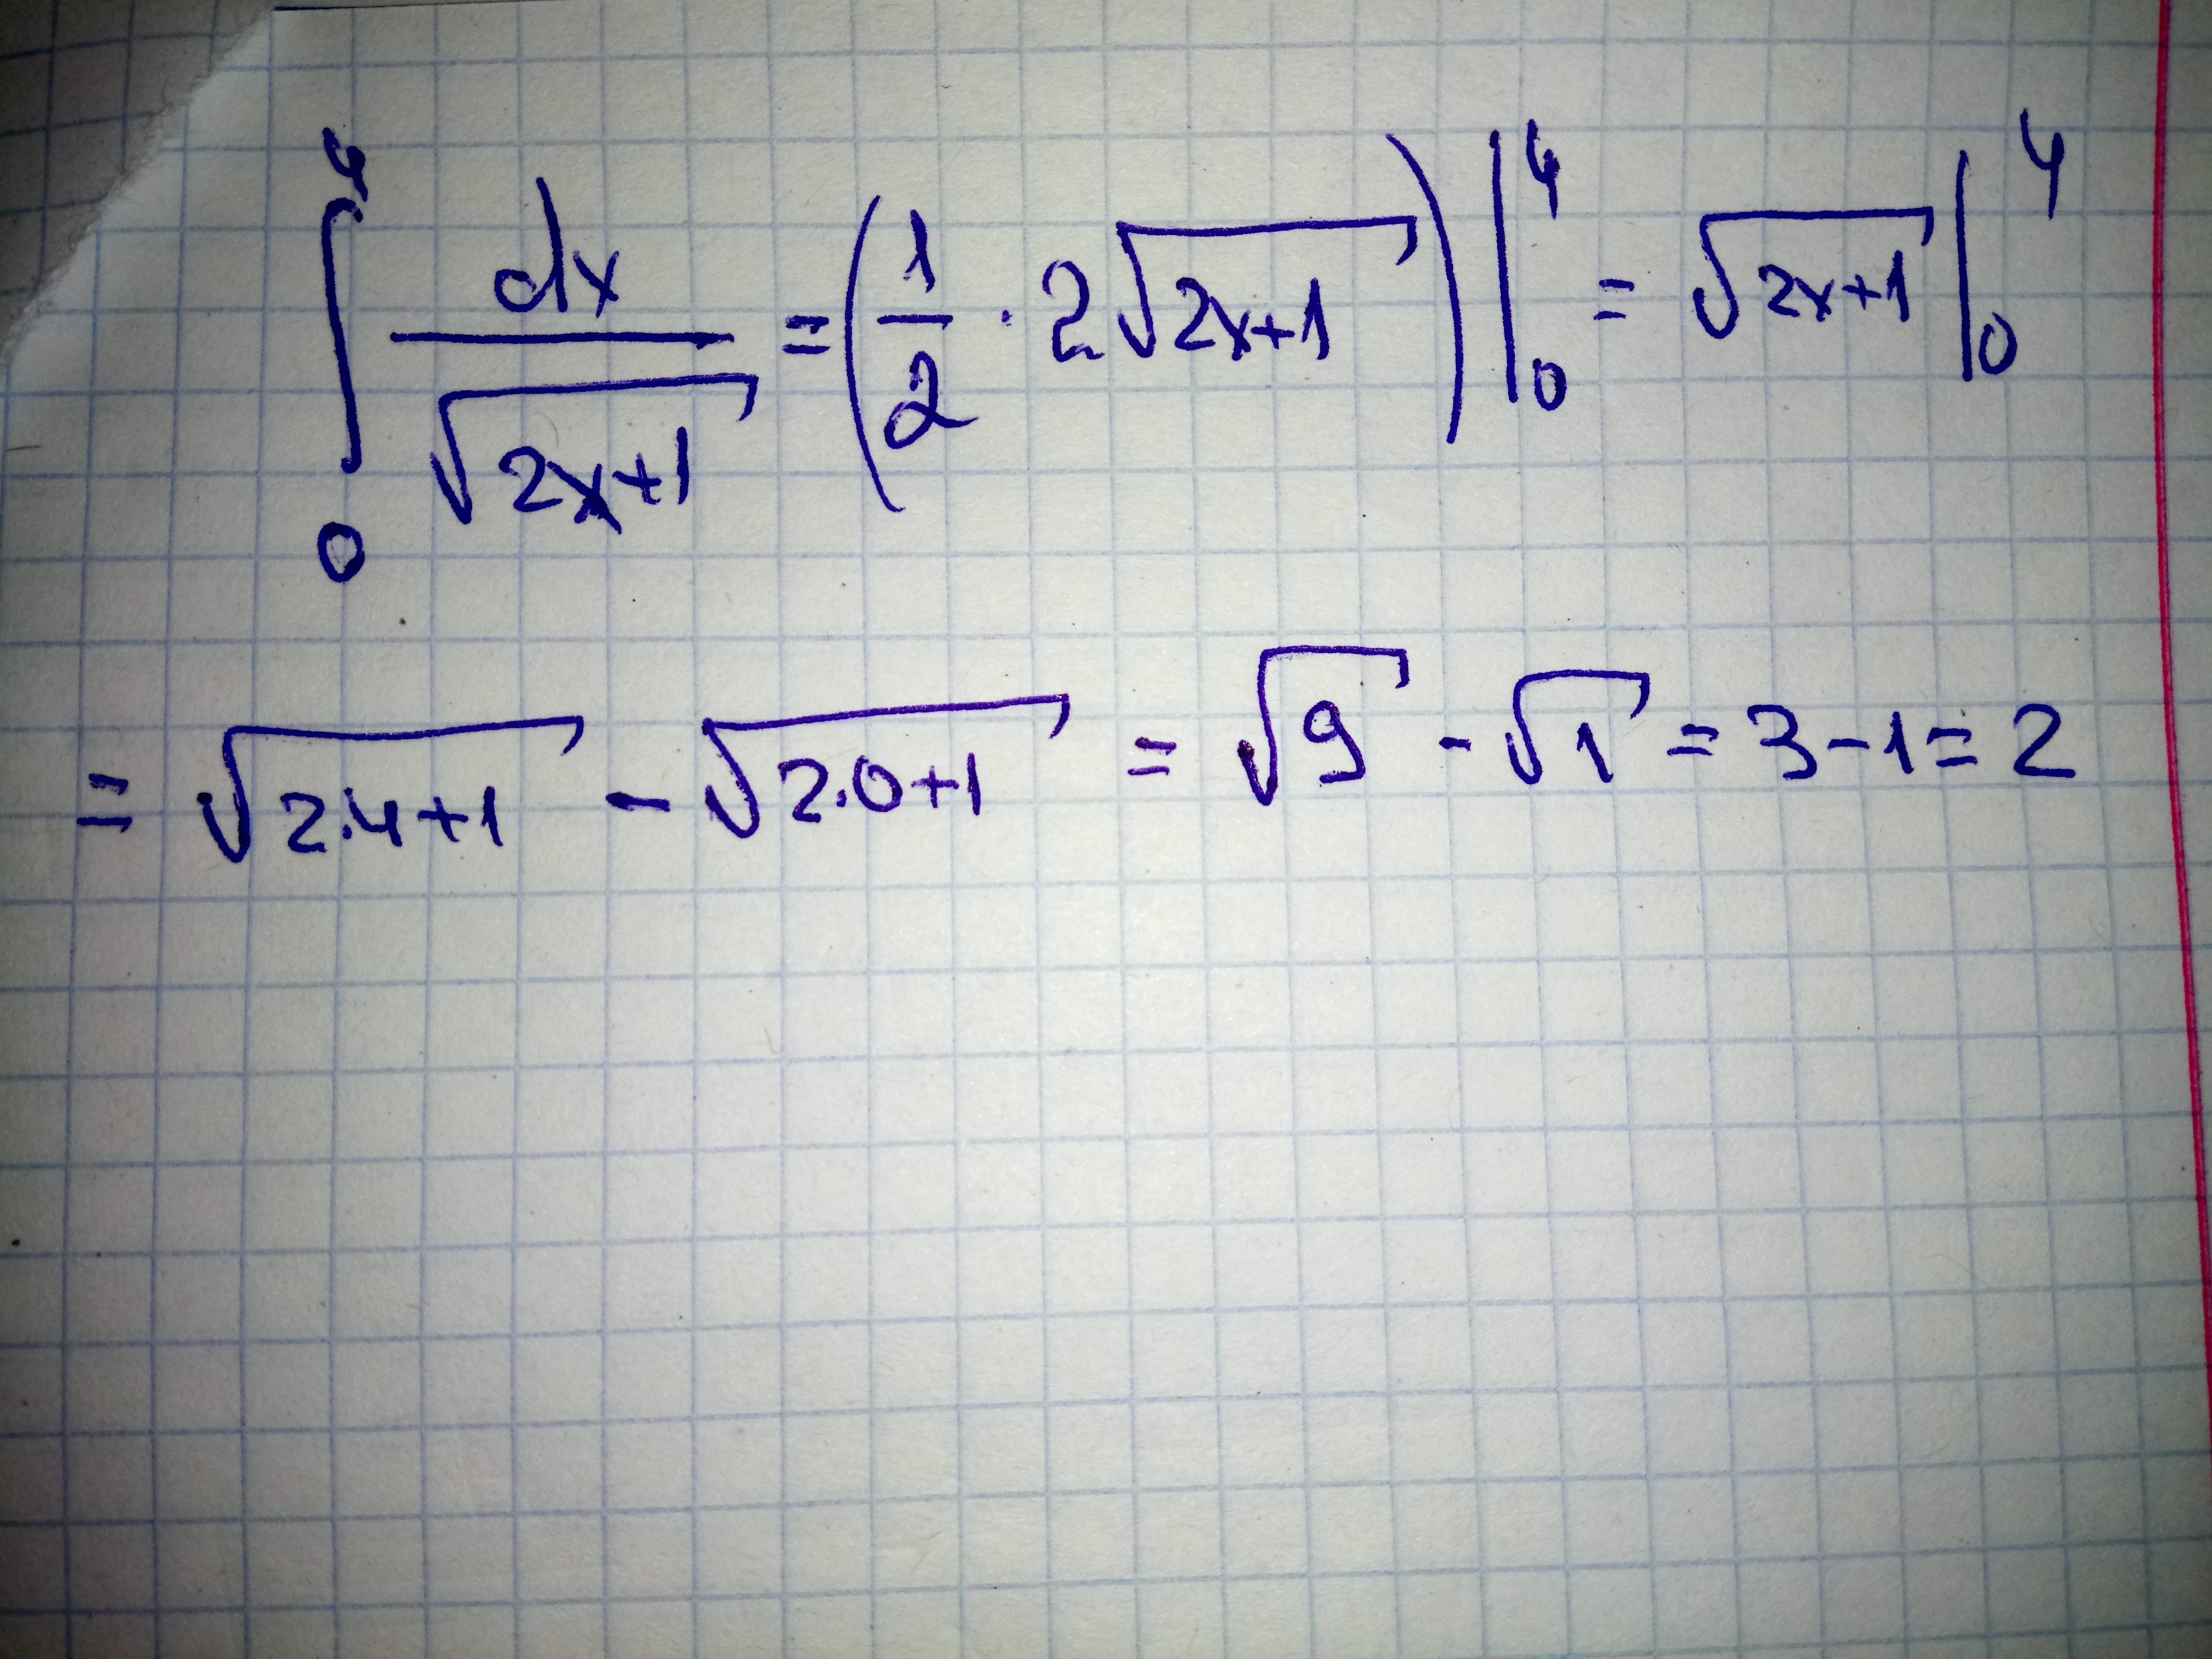 ∫₀⁴ dx/√(2x+1) = (1/2 · 2√(2x+1))|₀⁴ = √(2x+1)|₀⁴
= √(2·4+1) - √(2·0+1) = √9 - √1 = 3-1=2